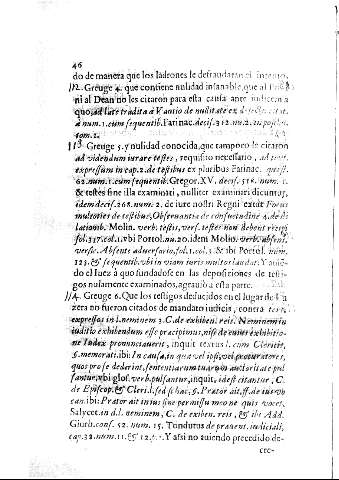 46
do de manera que los ladrones le defraudaran el intento.
12. Greuge 4. que contiene nulidad insanable, que al
ni al Dean no les citaron para esta causa ante
quo, ad late tradita à Vantio de nullitate ex defectu
à num. 1. cum sequentib. Farinac. decis. 312. nu. 2. in posthu.
tom. 1.
13 Greuge 5. y nulidad conocida, que tampoco le citaron
ad videndum iurare testes, requisito necessario, ad
expressum in cap. 2. de testibus ex pluribus Farinac.
62. num. 1. cum sequentib. Gregor. XV. decis. 516. num. 1.
& testes sine illa examinati, nulliter examinari dicuntur,
idem decis. 262. num. 2. de iure nostri Regni extat Forus
mulieres de testibus, Observantia de consuetudine 4. de di
lationib. Molin. verb. testis, vers. testes non debent recipi
fol. 317. col. 1. vbi Portol. nu. 20. idem Molin. verb. absens,
versic. Absente aduersario, fol. 1. col. 3. & ibi Portol. num.
123. & sequentib. vbi in viam iuris multos laudat. Y auiē
do el Iuez à quo fundadose en las deposiciones de testi-
gos nulamente examinados, agrauiò a esta parte.
14. Greuge 6. Que los testigos deducidos en el lugar de
zera no fueron citados de mandato iudicis, contra text.
expressos in l. neminem 5. C. de exhiben. reis. Neminem in
iuditio exhibendum esse præcipimus, nisi de cuius exhibitio-
ne Index pronunciauerit, inquit textus l. cum Clericis,
§. memorati. ibi: In causa, in qua vel ipsi, vel procuratores,
quos prose dederint, sententiarum tuarum auctoritate pul
santur, vbi glos. verb. pulsantur, inquit, idest citantur, C.
de Episcop. & Cleri. l. sed si hac, §. Prætor ait, ff. de in ius vo
can. ibi: Prætor ait in ius sine permissu meo ne quis vocet,
Salycet. in d. l. neminem, C. de exhiben. reis, & ibi Add.
Giurb. cons. 52. num. 15. Tondutus de præuent. iudiciali,
cap. 32. num. 11. & 12. Y assi no auiendo precedido de-
cre-